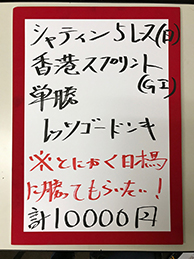 シャティン5レース(日)
香港スプリント
(GI)
単勝
レッツゴードンキ
※とにかく日本馬
に勝ってもらいたい!
計10000円